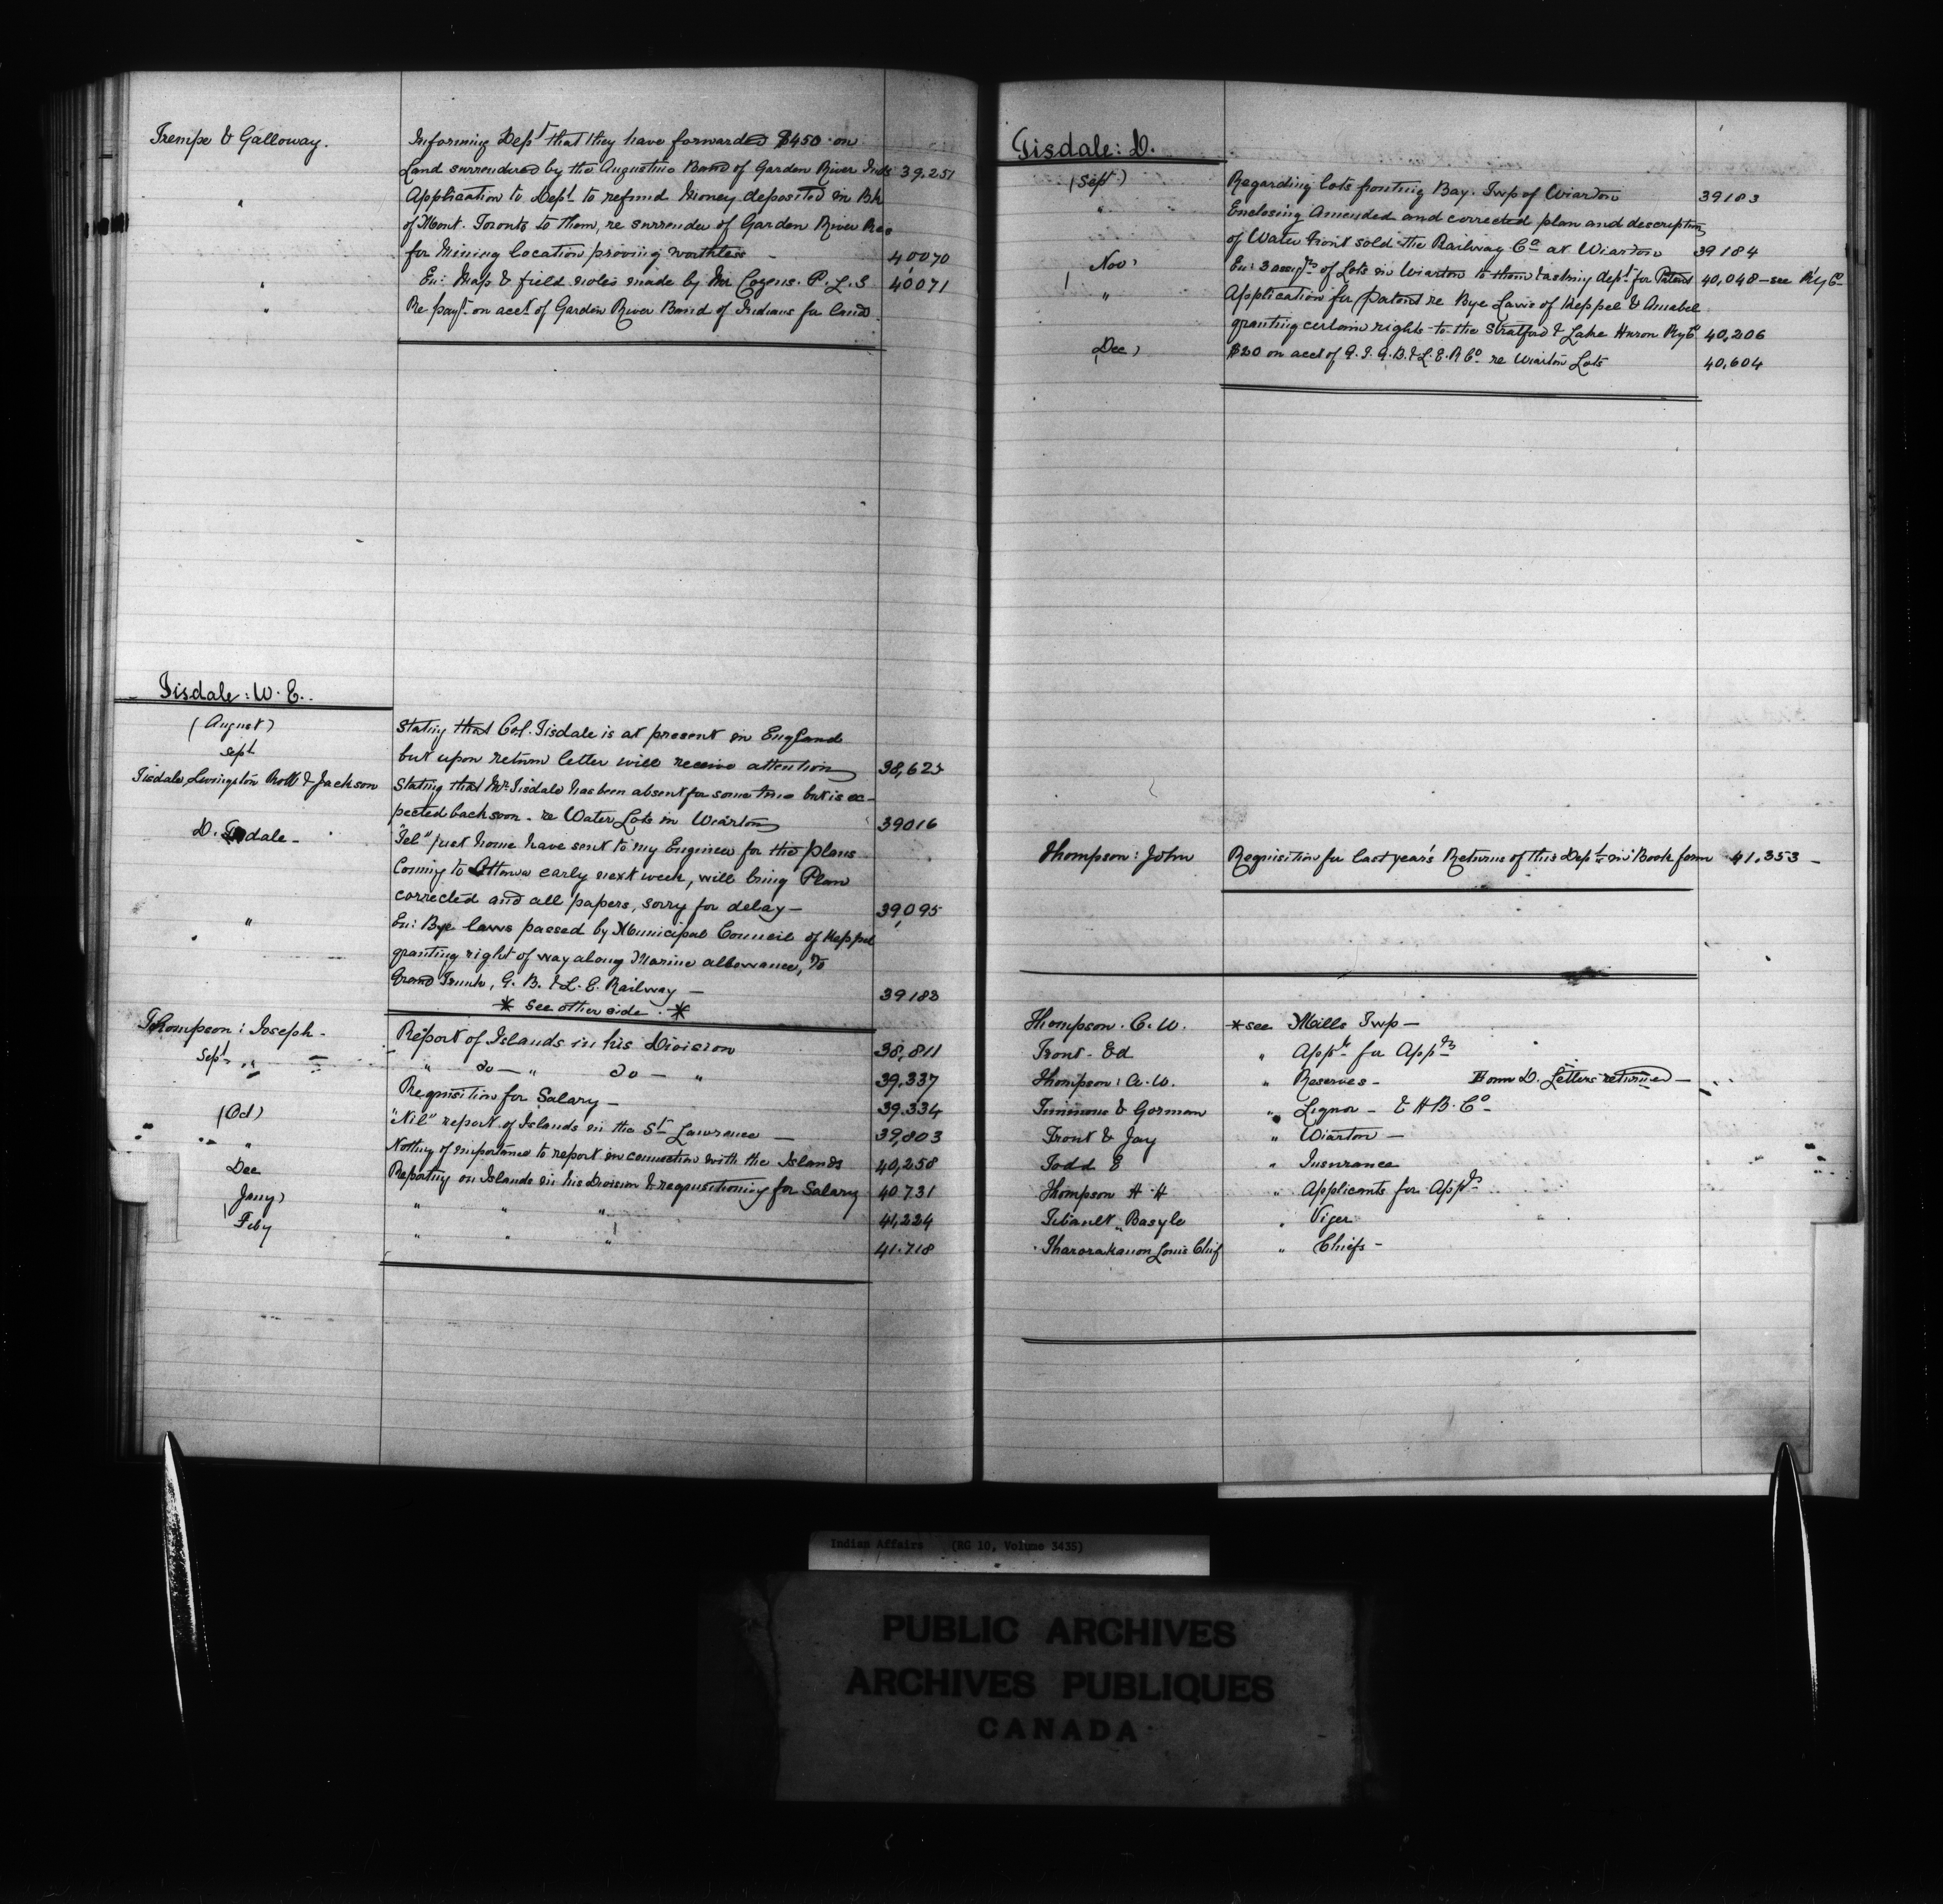 Trempe & Galloway. Informing Dept that they have forwarded $450 on
Land surrendered by the Augustine Band of Garden River Inds 39.251
" Application to Dept to refund Money deposited in Bk
of Mont. Toronto to them, re surrender of Garden River Res
for Mining location proving worthless - 40070
" En: Map & field notes made by Mr Cozens. P. L. S 40071
" Re payt on acct of Garden River Band of Indians for land.
Tisdale: W. E.
(August) Stating that Col. Tisdale is at present in England
but upon return letter will receive attention 38,625
Sept
Tisdale, Livingston Robb & Jackson Stating that Mr. Tisdale has been absent for some time but is ex-
pected back soon - re Water Lots in Wiarton 39016
D. Tisdale - "Tel" just home have sent to my Engineer for the plans
Coming to Ottawa early next week, will bring Plan
corrected and all papers, sorry for delay - 39,095
" En: Bye laws passed by Municipal Council of Keppel
granting right of way along Marine allowance, to
Grand Trunk, G. B. & L. E. Railway - 39183
* see other side. *
Thompson: Joseph - Report of Islands in his Division 38,811
Sept " " do - " do - " 39.337
Requisition for Salary - 39.334
(Oct) "Nil" report of Islands in the St Lawrence - 39,803
" Nothing of importance to report in connection with the Islands 40,258
Dec Reporting on Islands in his Division & requisitioning for Salary 40.731
Jany) " " " 41,224
Feby " " " 41.718
Tisdale: D.
(Sept) Regarding lots fronting Bay. Twp of Wiarton 39183
" Enclosing Amended and corrected plan and description
of Water front sold the Railway Co at Wiarton 39184
Nov: En: 3 assigts of Lots in Wiarton to them & asking dept for Patent 40,048 - see Ry Co
" Application for patent re Bye Laws of Keppel & Amabel
granting certain rights to the Stratford & Lake Huron Ry Co 40,206
(Dec) $20 on acct of G. T. G. B. & L. E. R Co re Wiarton Lots 40,604
Thompson: John Requisition for last year's Returns of this Dept in Book form 41.353 -
Thompson. C. W. * see Mills Twp -
Front - Ed " Appts for Appts
Thompson: A. W. " Reserves - Hom D. Letters returned -
Timmons & Gorman " Liquor - & H B. Co -
Front & Jay " Wiarton -
Todd E " Insurance
Thompson H. H " Applicants for Appts
Tibault, Basyle " Viger
Tharorakauon Louis Chief " Chiefs -
Indian Affairs (RG 10, Volume 3435)
PUBLIC ARCHIVES
ARCHIVES PUBLIQUES
CANADA